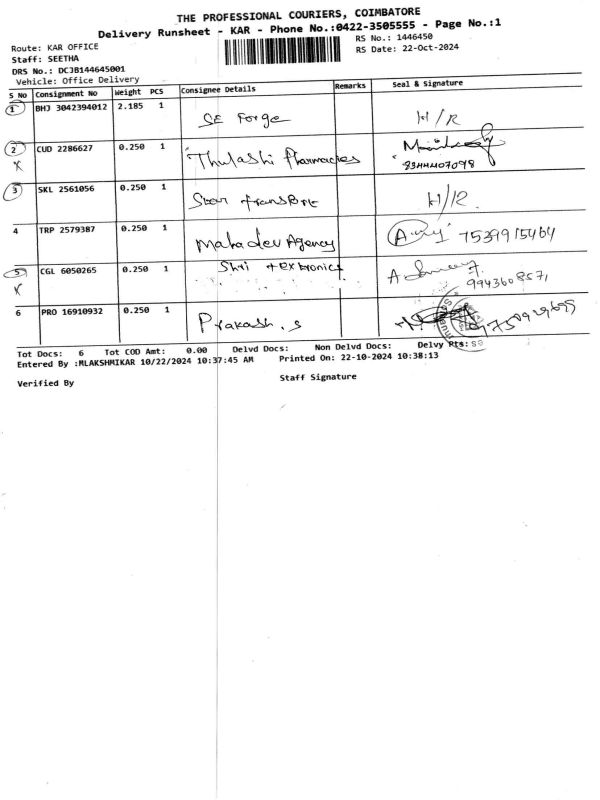 THE PROFESSIONAL COURIERS, COIMBATORE
Delivery Runsheet - KAR - Phone No.:0422-3505555 - Page No.:1
Route: KAR OFFICE
RS No.: 1446450
Staff: SEETHA
RS Date: 22-Oct-2024
DRS No.: DCJB144645001
Vehicle: Office Delivery
S No Consignment No Weight PCS Consignee Details Remarks Seal & Signature
1 BHJ 3042394012 2.185 1 SE Forge H/R
2 CUD 2286627 0.250 1 Thulashi Pharmacies
x 8344407098
3 SKL 2561056 0.250 1 Star transport H/R.
4 TRP 2579387 0.250 1 Mahadev Agency 7539915464
5 CGL 6050265 0.250 1 Shri textronics
x 9943608571
6 PRO 16910932 0.250 1 Prakash. S
Tot Docs: 6 Tot COD Amt: 0.00 Delvd Docs: Non Delvd Docs: Delvy Pts:
Entered By :MLAKSHMIKAR 10/22/2024 10:37:45 AM Printed On: 22-10-2024 10:38:13
Verified By Staff Signature